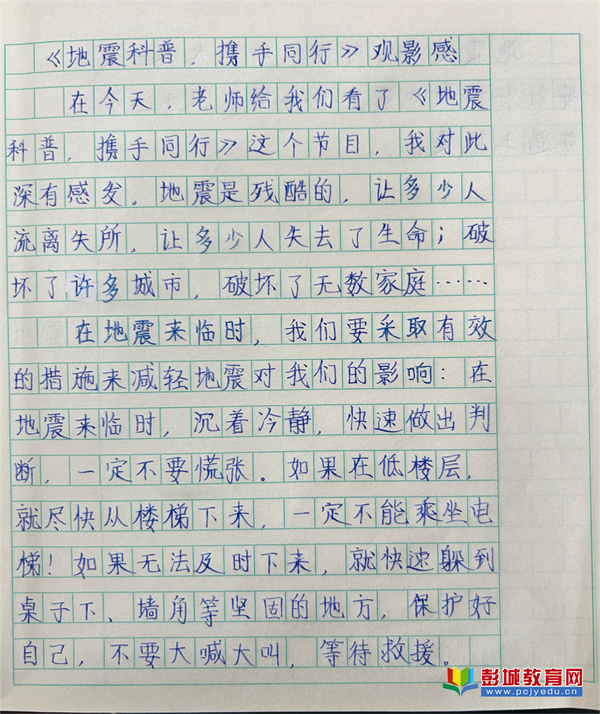 《地震科普，携手同行》观影感
在今天，老师给我们看了《地震
科普，携手同行》这个节目，我对此
深有感发。地震是残酷的，让多少人
流离失所，让多少人失去了生命；破
坏了许多城市，破坏了无数家庭……
在地震来临时，我们要采取有效
的措施来减轻地震对我们的影响：在
地震来临时，沉着冷静，快速做出判
断，一定不要慌张。如果在低楼层，
就尽快从楼梯下来，一定不能乘坐电
梯！如果无法及时下来，就快速躲到
桌子下、墙角等坚固的地方，保护好
自己，不要大喊大叫，等待救援。
彭城教育网
www.pcjyedu.cn